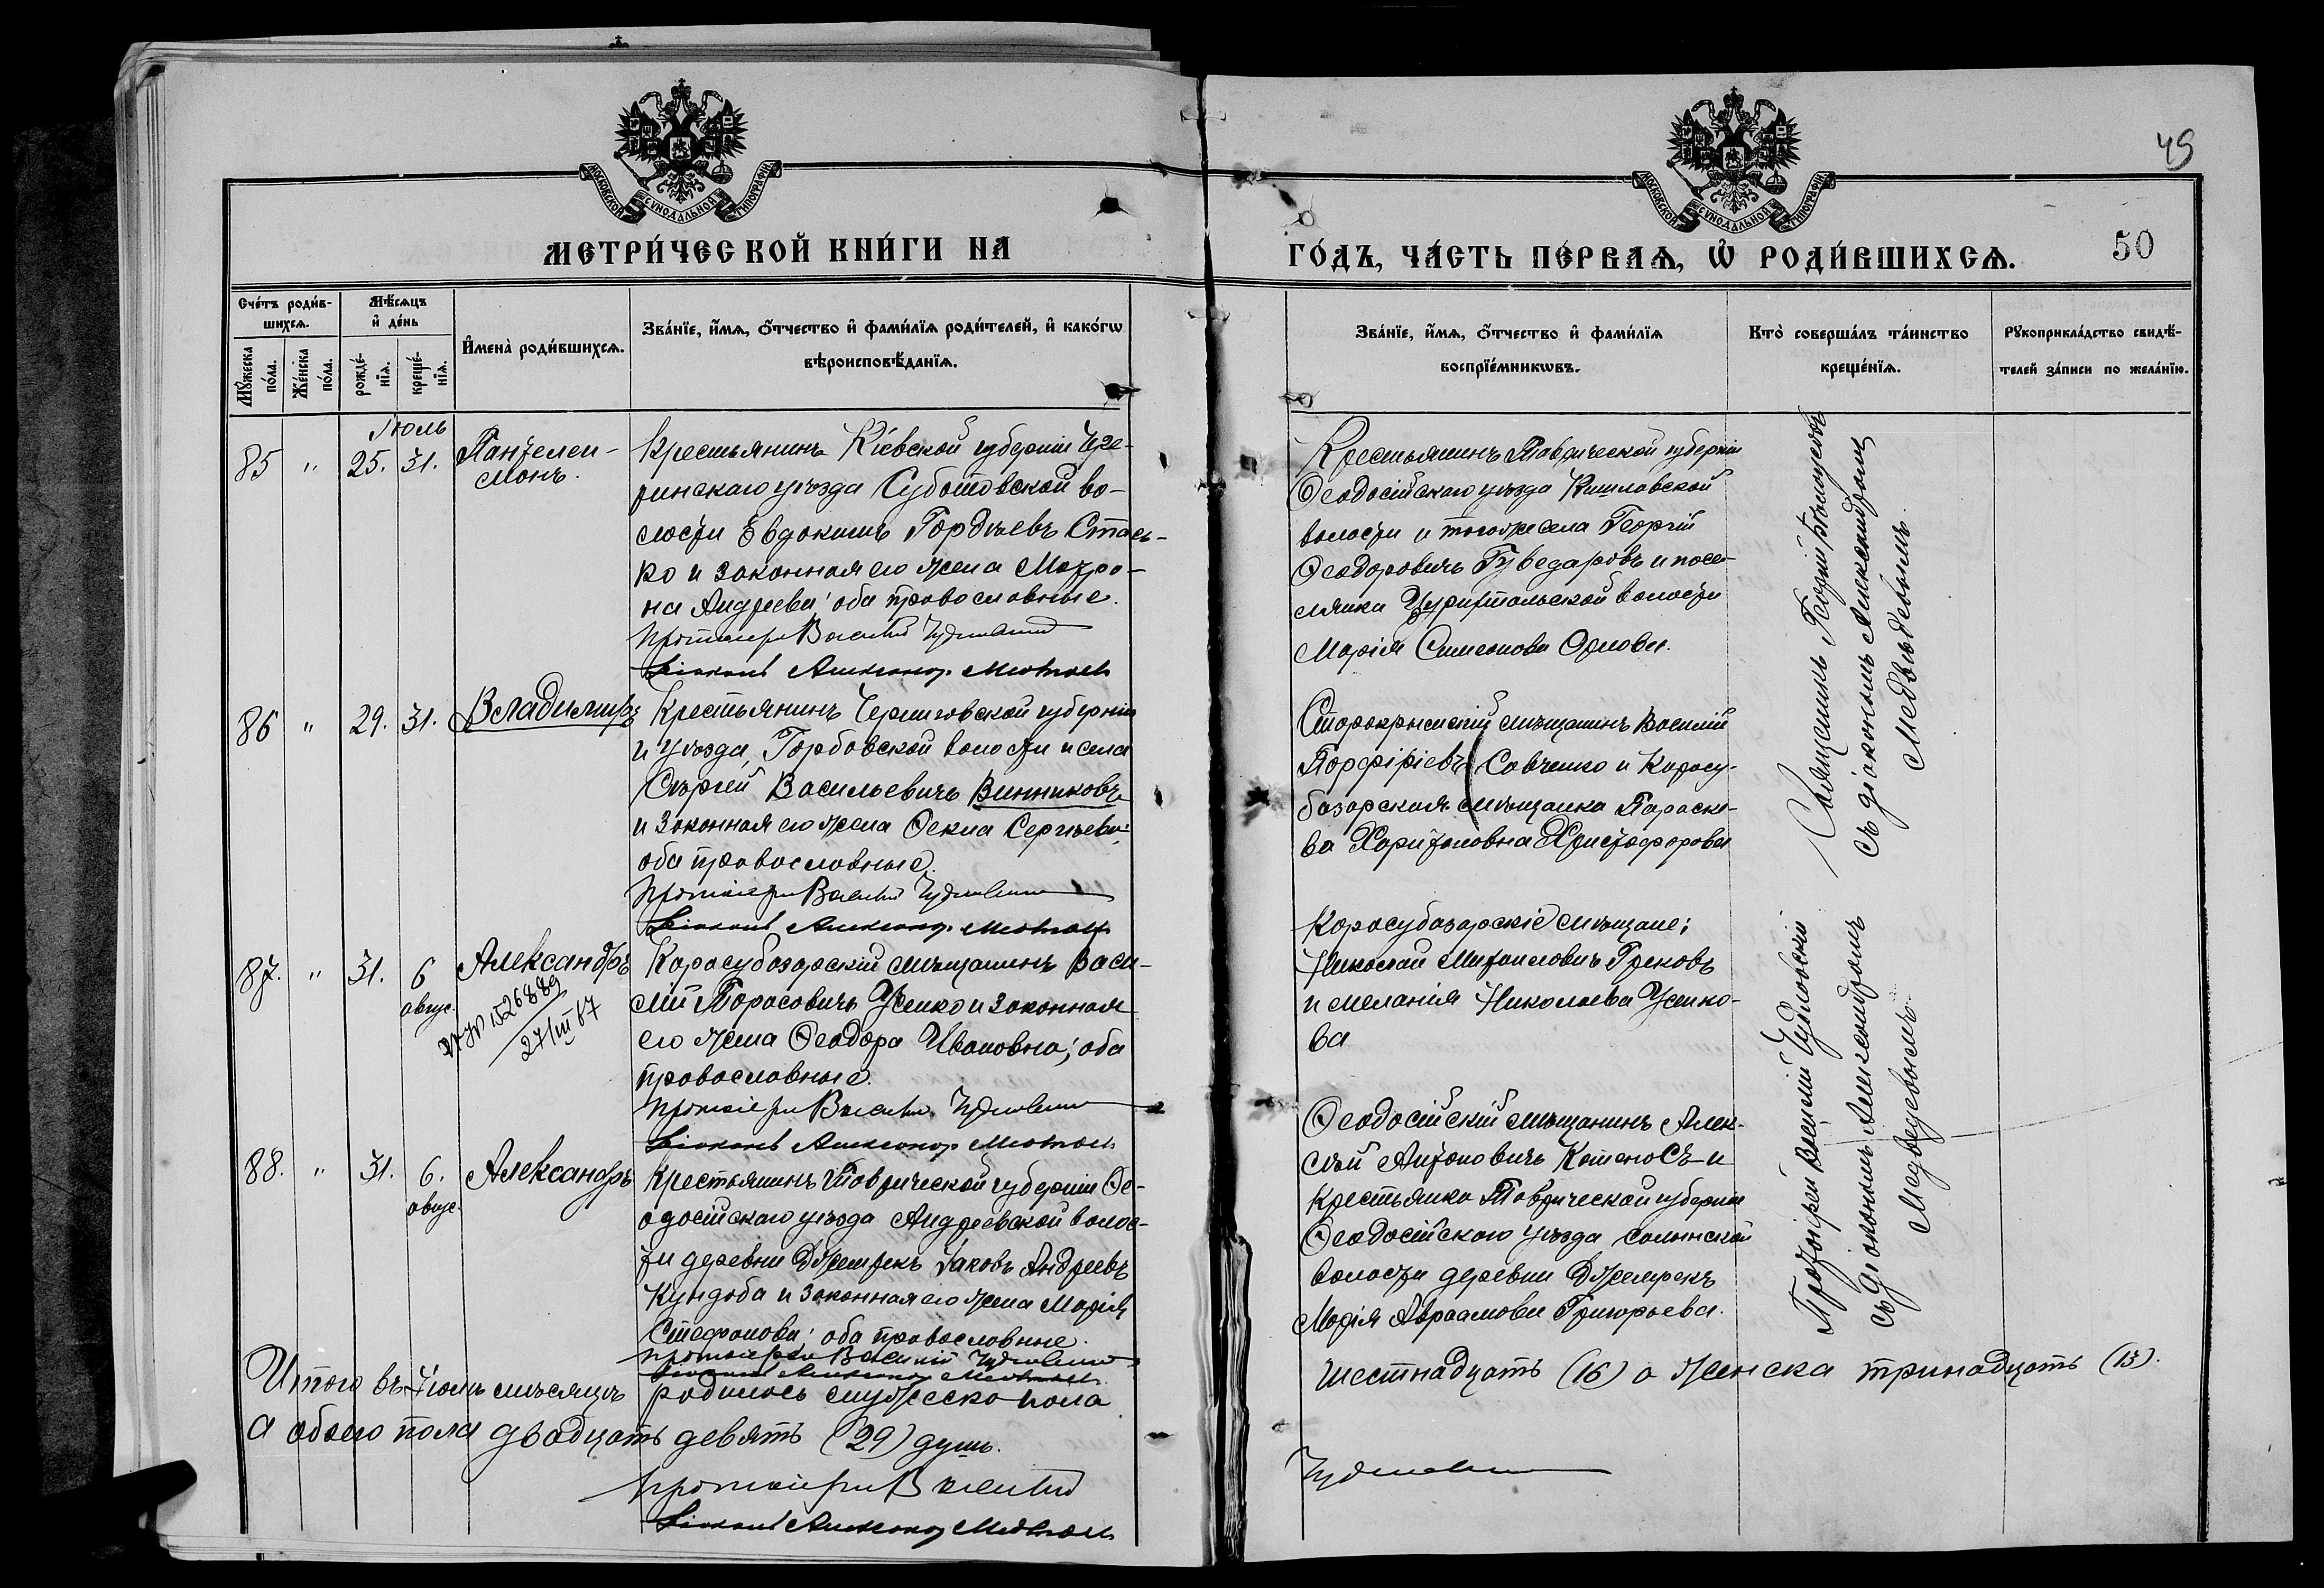 49
МОСКОВСКОЙ СУНОДАЛЬНОЙ ТИПОГРАФІИ
МОСКОВСКОЙ СУНОДАЛЬНОЙ ТИПОГРАФІИ
МЕТРИ́ЧЕСКОЙ КНИ́ГИ НА
ГО́ДЪ, ЧА́СТЬ ПЕ́РВАѦ, Ѡ҆ РОДИ́ВШИХСѦ.
50
Сче́тъ роди́в-
шихсѧ.
Мꙋ́жеска по́ла.
Же́нска по́ла.
Мѣ́сѧцъ
и҆ де́нь
рожде́-
нїѧ.
креще́-
нїѧ.
И҆мена̀ роди́вшихсѧ.
Зва́нїе, и҆́мѧ, ѻ҆́тчество и҆ фами́лїѧ роди́телей, и҆ како́гѡ
вѣроисповѣ́данїѧ.
Зва́нїе, и҆́мѧ, ѻ҆́тчество и҆ фами́лїѧ
воспрїе́мникѡвъ.
Кто̀ соверша́лъ та́инство
креще́нїѧ.
Рꙋкоприкла́дство свидѣ́-
телей за́писи по жела́нїю.
Іюль
85 " 25. 31. Пантелеи-
монъ.
Крестьянинъ Кіевской губерніи Чиге-
ринскаго уѣзда Суботовской во-
лости Евдокимъ Гордѣевъ Стась-
ко и законная его жена Матро-
на Андреева; оба православные.
Протоіерей Василій Чудновскій
Діаконъ Александр
Крестьянинъ Таврической губерніи
Ѳеодосійскаго уѣзда Кишлавской
волости и тогоже села Георгій
Ѳеодоровичъ Гуведаровъ и посе-
лянка Цюрихтальской волости
Марія Симеонова Орлова.
Священникъ Георгій
съ діакономъ Александромъ
Медвѣдевымъ.
86 " 29. 31. Владимиръ
Крестьянинъ Черниговской губерніи
и уѣзда, Горбовской волости и села
Сергій Васильевичъ Винниковъ
и законная его жена Ѳекла Сергѣева;
оба православные.
Протоіерей Василій Чудновскій
Діаконъ Александр
Старокрымскій мѣщанинъ Василій
Порфиріевъ Савченко и Карасу-
базарская мѣщанка Параске-
ва Харитоновна Христофорова
87. " 31. 6 авгус. Александръ
1526889
27/III 87
Карасубазарскій мѣщанинъ Васи-
лій Тарасовичъ Усенко и законная
его жена Ѳеодора Ивановна; оба
православные.
Протоіерей Василій Чудновскій
Діаконъ Александр
Карасубазарскіе мѣщане;
Николай Михаиловичъ Грековъ
и Меланія Николаева Усенко-
ва
Протоіерей Василій Чудновскій
съ діакономъ Александромъ
Медвѣдевымъ.
88. " 31. 6. авгус. Александръ
Крестьянинъ Таврической губерніи Ѳе-
одосійскаго уѣзда Андреевской волос-
ти деревни Іаковъ Андреевъ
Кундоба и законная его жена Марія
Стефанова; оба православные.
Протоіерей Василій Чудновскій
Ѳеодосійскій мѣщанинъ Алек-
сѣй Антоновичъ и
крестьянка Таврической губерніи
Ѳеодосійскаго уѣзда Салынской
волости деревни
Марія Авраамова Григорьева.
Итого въ Іюлѣ мѣсяцѣ родилось мужеска пола шестнадцать (16) а женска тринадцать (13).
а обоего пола двадцать девять (29) душъ.
Протоіерей Василій Чудновскій
Діаконъ Александр